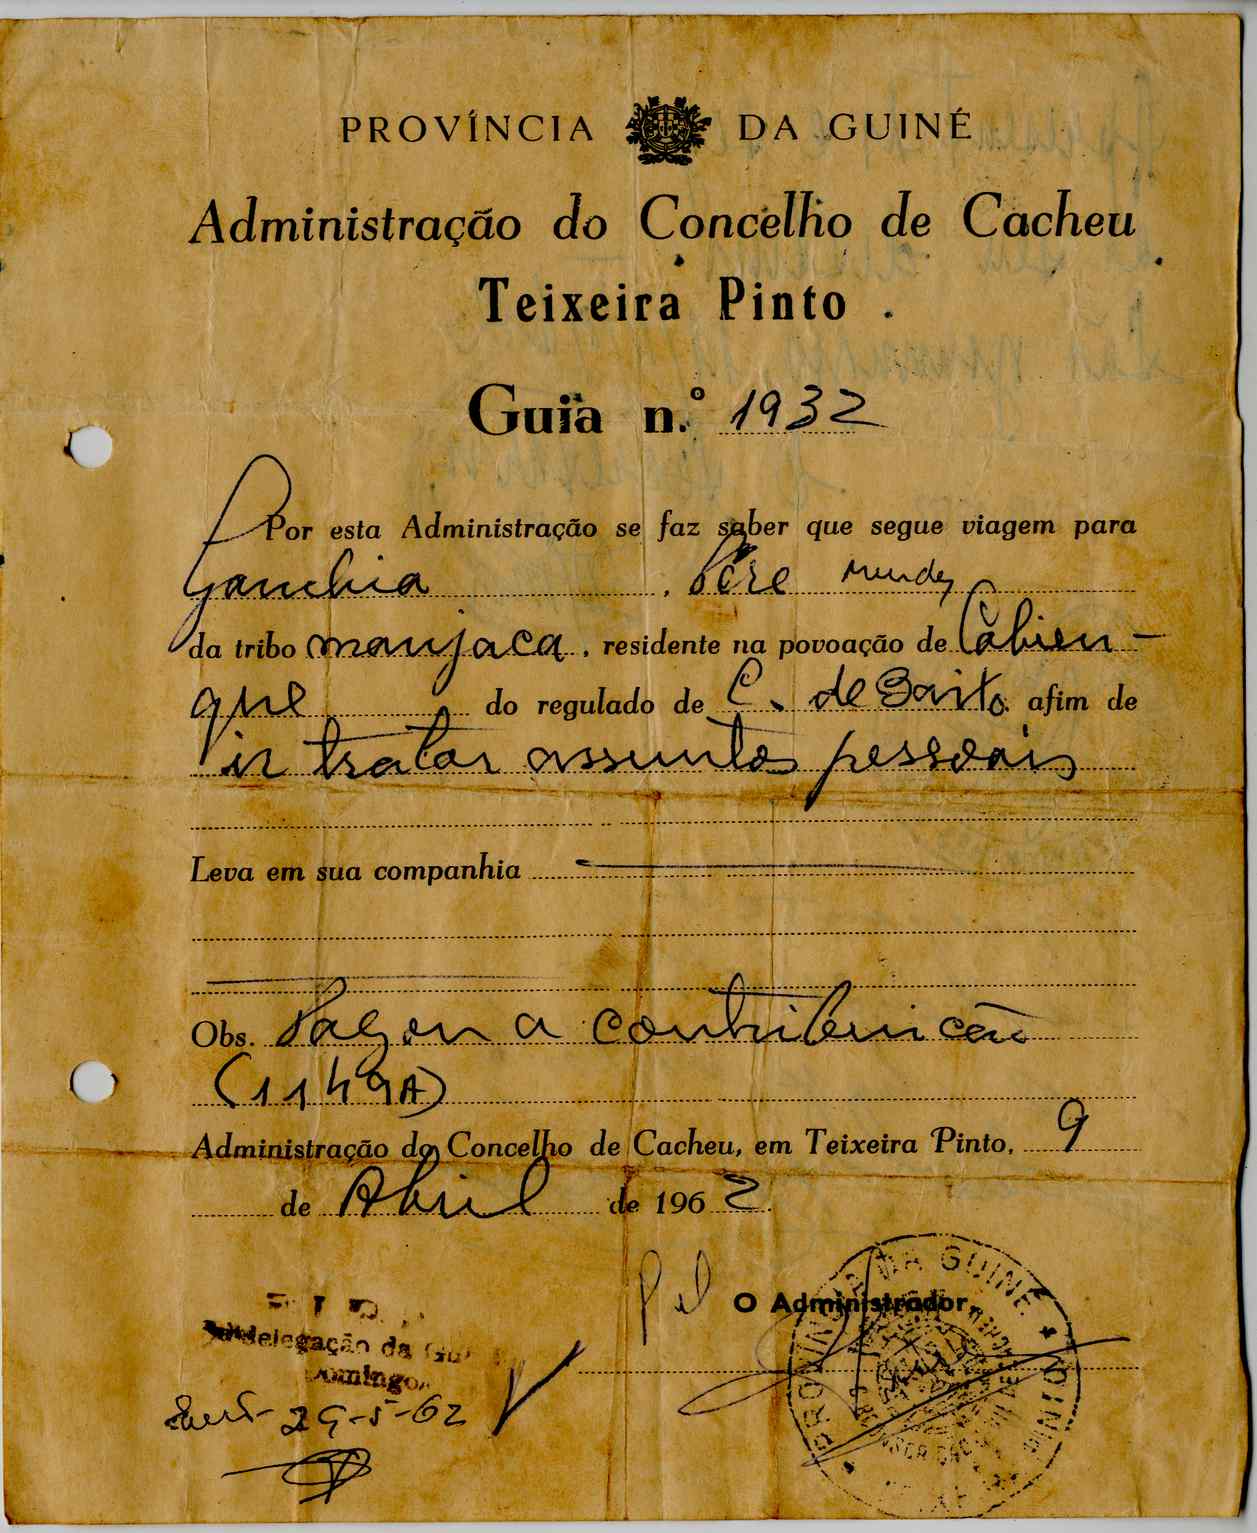 PROVÍNCIA DA GUINÉ
Administração do Concelho de Cacheu
Teixeira Pinto
Guia n.º 1932
Por esta Administração se faz saber que segue viagem para
Ganchia, Pére Mendes
da tribo manjaca, residente na povoação de Cabien-
que do regulado de C. de Baixo afim de
ir tratar assuntos pessoais
Leva em sua companhia
Obs. Pagou a contribuição
(1149A)
Administração do Concelho de Cacheu, em Teixeira Pinto, 9
de Abril de 1962.
Pel O Administrador,
PROVINCIA DA GUINÉ
delegação da
Domingos
29-5-62